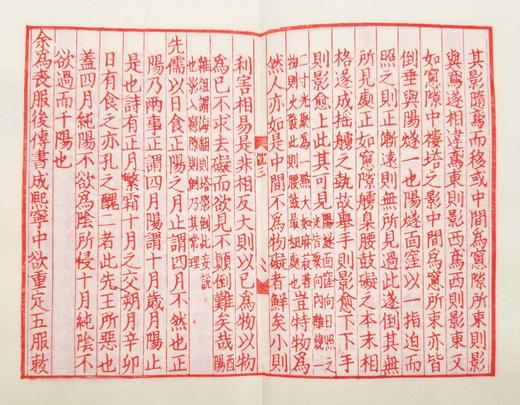 其影隨鳶而移或中間為窻隙所束則影
與鳶遂相違鳶東則影西鳶西則影東又
如窻隙中樓塔之影中間為窻所束亦皆
倒垂與陽燧一也陽燧面窪以一指迫而
照之則正漸遠則無所見過此遂倒其無
所見處正如窻隙艣臬腰鼓礙之本末相
格遂成搖艣之執故舉手則影愈下下手
則影愈上此其可見陽燧面窪向日照之
光皆聚向內離鏡一
二寸光聚為一點大如麻菽著
物則火發此則腰鼓最細處也豈特物為
然人亦如是中間不為物礙者鮮矣小則
利害相易是非相反大則以己為物以物
為己不求去礙而欲見不顛倒難矣哉酉
陽
雜俎謂海翻則塔影倒此妄說
也影入窻隙則倒乃其常理
先儒以日食正陽之月止謂四月不然也正
陽乃兩事正謂四月陽謂十月歲月陽止
是也詩有正月繁霜十月之交朔月辛卯
日有食之亦孔之醜二者此先王所惡也
蓋四月純陽不欲為陰所侵十月純陰不
欲過而干陽也
余為喪服後傳書成熙寧中欲重定五服敕